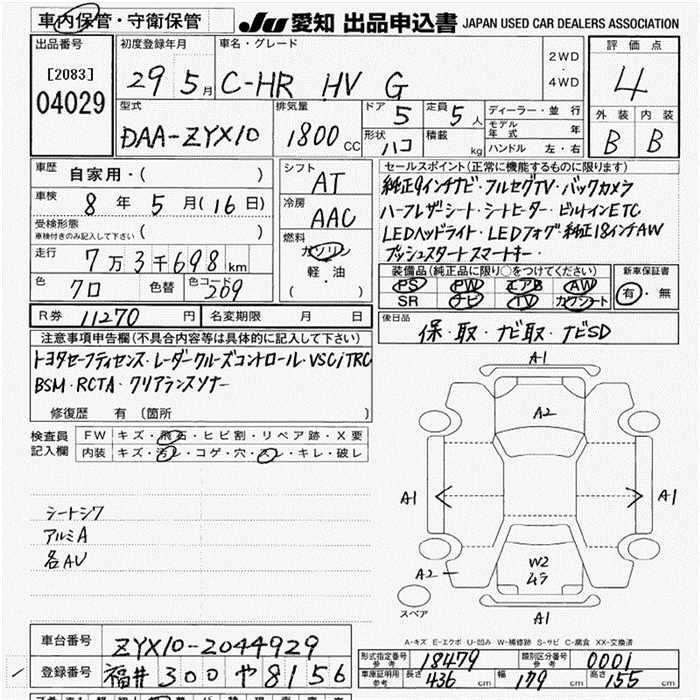 車内保管・守衛保管
JU 愛知 出品申込書 JAPAN USED CAR DEALERS ASSOCIATION
出品番号
[2083]
04029
初度登録年月
29 5月
車名・グレード
C-HR HV G
2WD
・
4WD
評価点
4
外装 内装
B B
型式
DAA-ZYX10
排気量
1800 CC
ドア 5
定員 5人
形状 ハコ
積載 kg
ディーラー・並行
モデル年式 年
ハンドル 左・右
車歴 自家用・( )
車検 8年5月(16日)
受検形態
車検付きのみ記入して下さい ( )
走行 7万3千698km
色 クロ 色替 色コード 209
シフト AT
冷房 AAC
燃料
ガソリン
軽・油
( )
セールスポイント(正常に機能するものに限ります)
純正9インチナビ・フルセグTV・バックカメラ
ハーフレザーシート・シートヒーター・ビルトインETC
LEDヘッドライト・LEDフォグ・純正18インチAW
プッシュスタートスマートキー・
装備品(純正品に限り○をつけてください)
PS PW エアB AW
SR ナビ TV カワシート
新車保証書
有・無
R券 11270円 名変期限 月 日
後日品
保・取・ナビ取・ナビSD
注意事項申告欄(不具合内容等は具体的に記入して下さい)
トヨタセーフティセンス・レーダークルーズコントロール・VSC・TRC
BSM・RCTA・クリアランスソナー
修復歴 有 〔箇所 〕
検査員記入欄
FW キズ・飛石・ヒビ割・リペア跡・X要
内装 キズ・汚レ・コゲ・穴・スレ・キレ・破レ
シートシワ
アルミA
各AU
A1
A2
A1
A1
W2
ムラ
A2
A1
スペア
A-キズ E-エクボ U-凹み W-補修跡 S-サビ C-腐食 XX-交換済
車台番号 ZYX10-2044929
登録番号 福井300や8156
形式指定番号 参考 18479
類別区分番号 参考 0001
車庫証明用 参考 長さ 436cm 幅 179cm 高さ 155cm